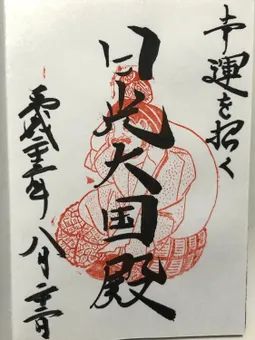 幸運を招く
日光大国殿
平成二十年八月